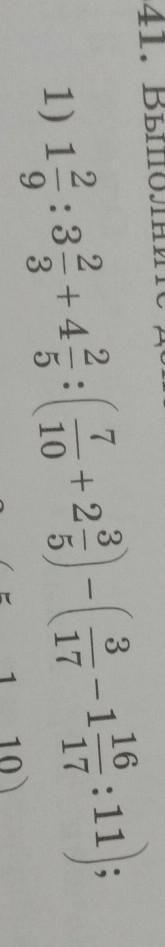 41. Выполните
1) 1 2/9 : 3 2/3 + 4 2/5 : (7/10 + 2 3/5) − (3/17 − 1 16/17 : 11);